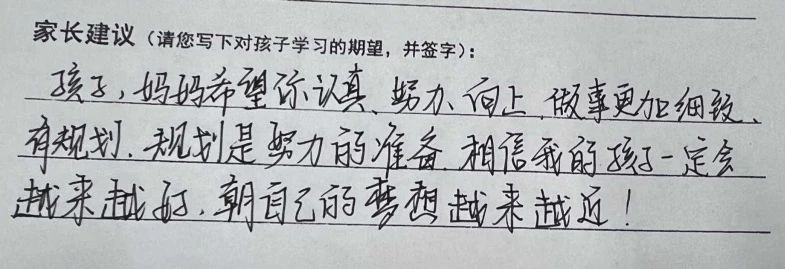 家长建议（请您写下对孩子学习的期望，并签字）：
孩子，妈妈希望你认真、努力、向上，做事更加细致、
有规划，规划是努力的准备，相信我的孩子一定会
越来越好，朝自己的梦想越来越近！